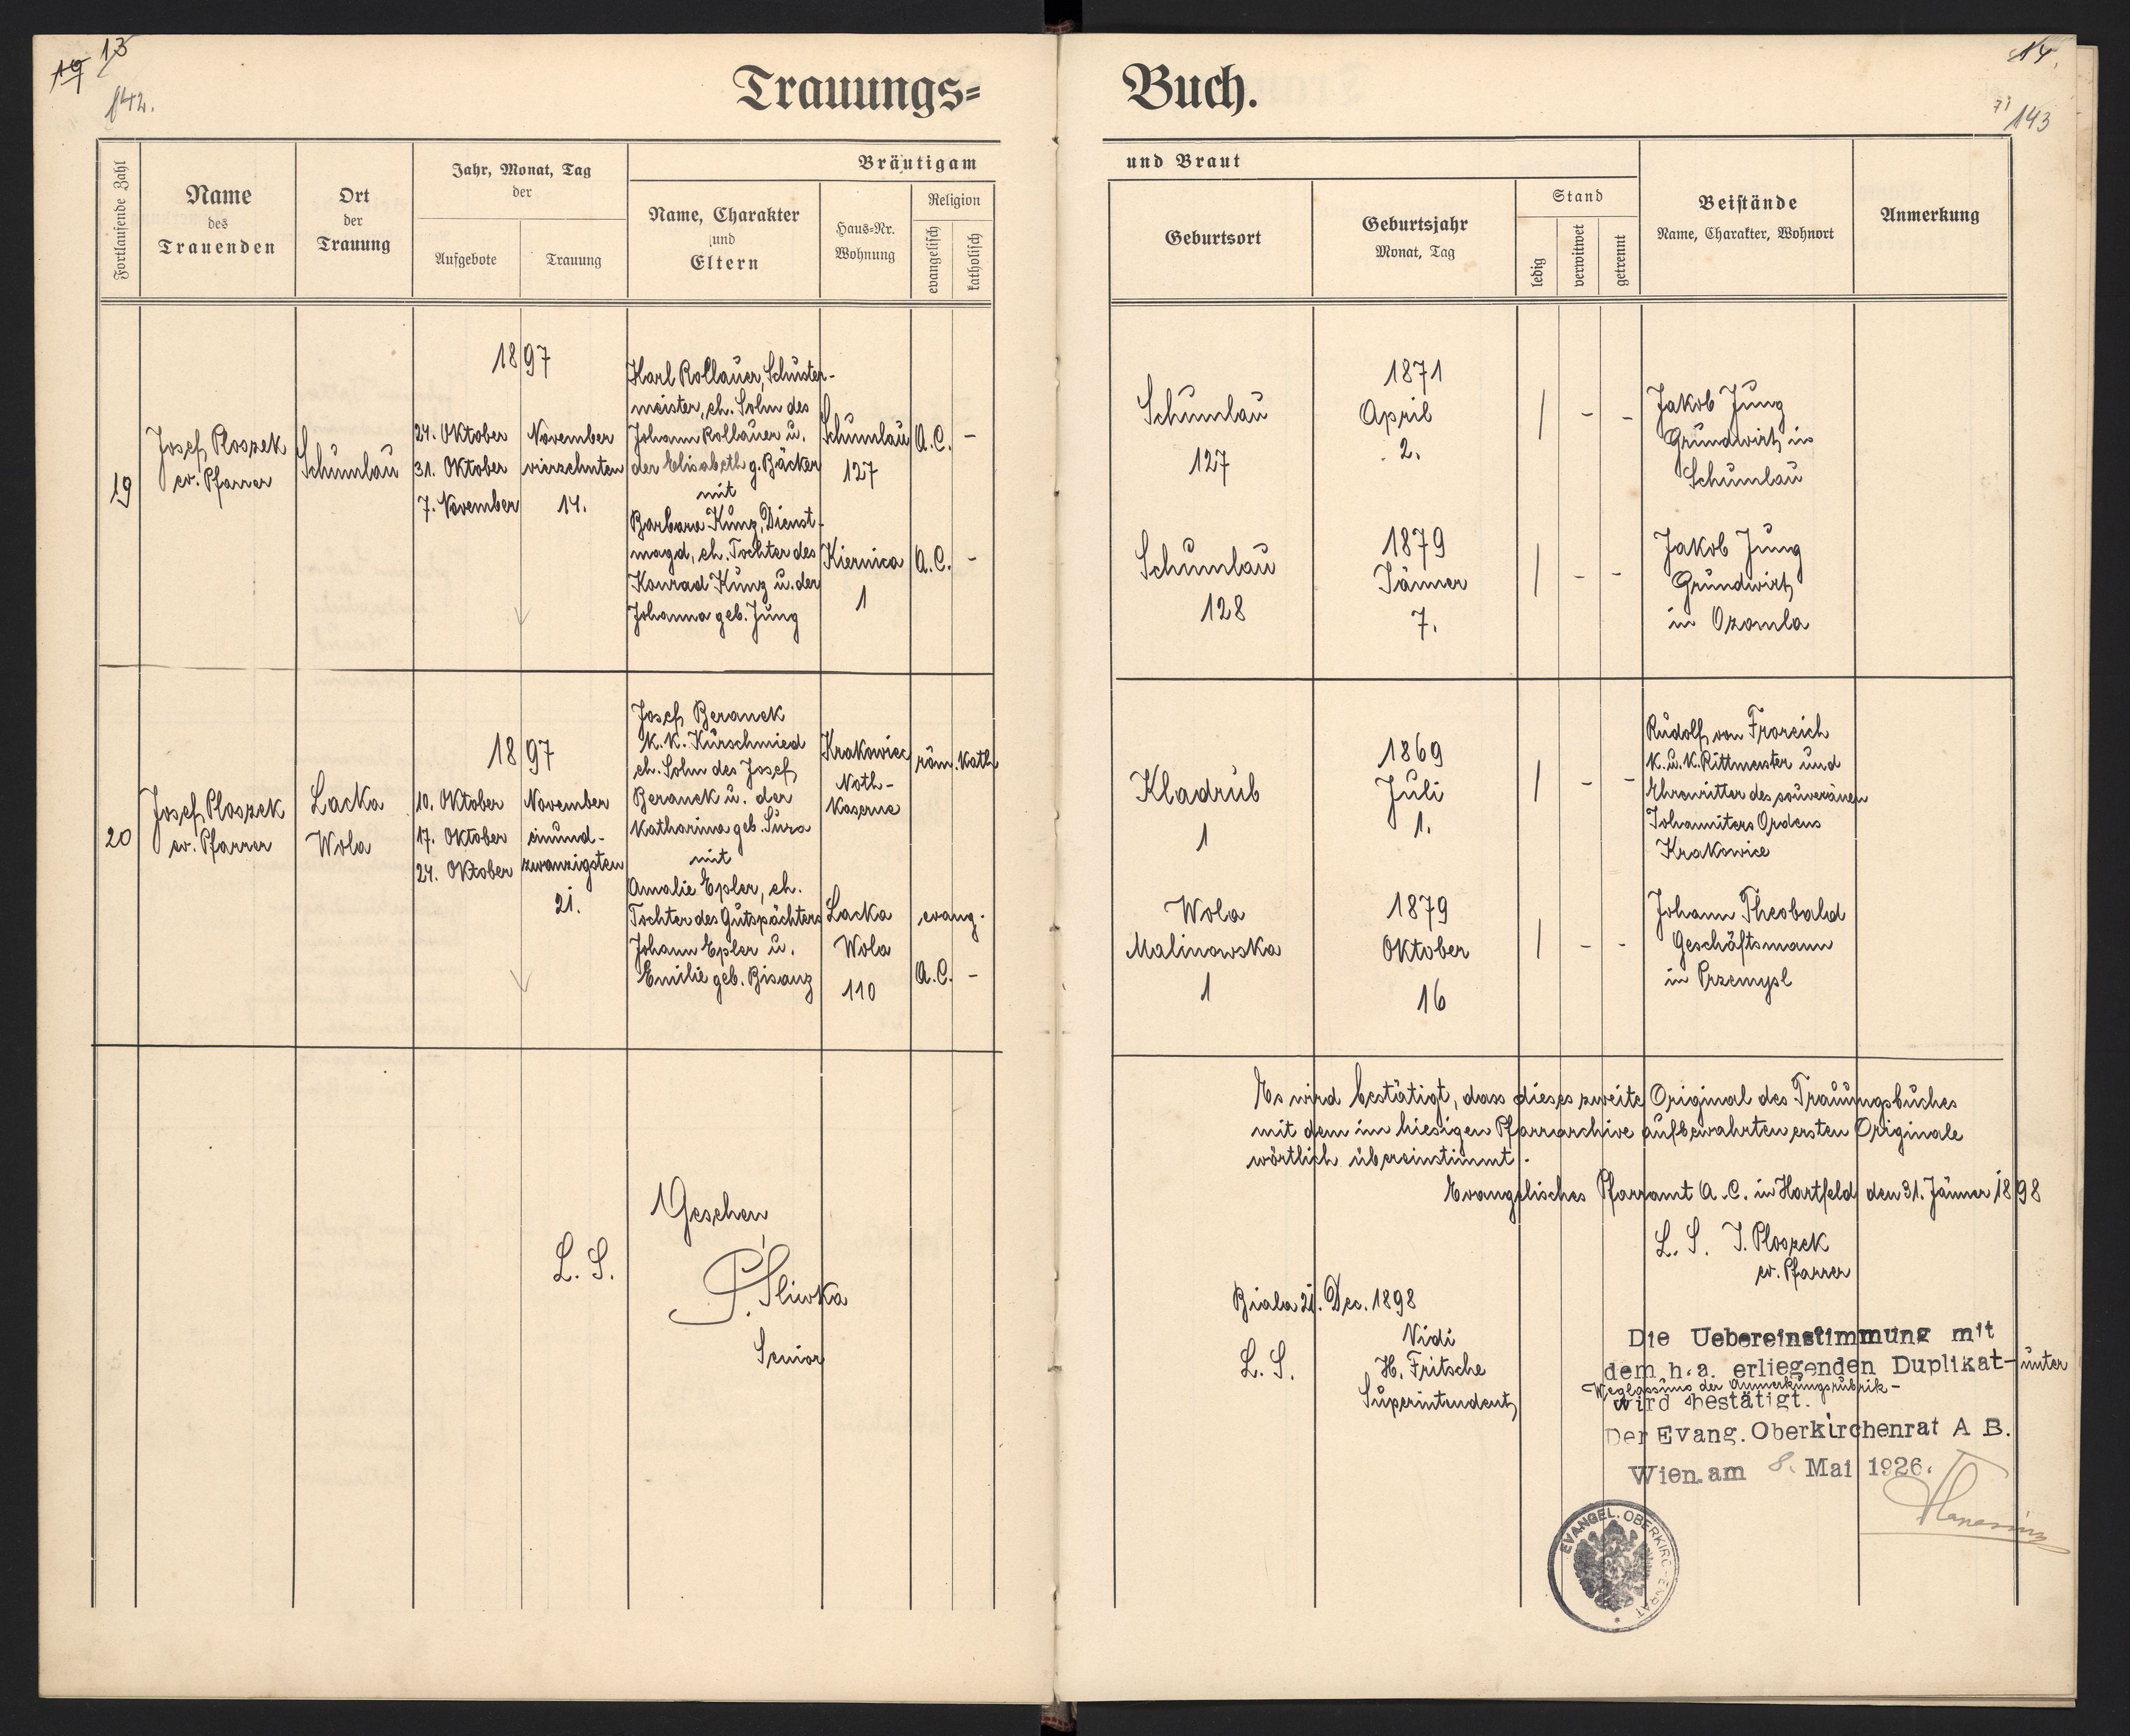 19 13
142.
Trauungs=
Buch.
14.
71 143
Fortlaufende Zahl
Name
des
Trauenden
Ort
der
Trauung
Jahr, Monat, Tag
der
Aufgebote
Trauung
Bräutigam
Name, Charakter
und
Eltern
Haus=Nr.
Wohnung
Religion
evangelisch
katholisch
und Braut
Geburtsort
Geburtsjahr
Monat, Tag
Stand
ledig
verwitwet
getrennt
Beistände
Name, Charakter, Wohnort
Anmerkung
19
Josef Ploszek
ev. Pfarrer
Schumlau
1897
24. Oktober
31. Oktober
7. November
November
vierzehnten
14.
Karl Rollauer, Schuster-
meister, eh. Sohn des
Johann Rollauer u.
der Elisabeth g. Bäcker
mit
Barbara Kunz, Dienst-
magd, eh. Tochter des
Konrad Kunz u. der
Johanna geb. Jung
Schumlau
127
A.C. -
Kiernica
1
A.C. -
Schumlau
127
1871
April
2.
| - -
Jakob Jung
Grundwirt in
Schumlau
Schumlau
128
1879
Jänner
7.
| - -
Jakob Jung
Grundwirt
in Ozomla
20
Josef Ploszek
ev. Pfarrer
Lacka
Wola
1897
10. Oktober
17. Oktober
24. Oktober
November
einund-
zwanzigsten
21.
Josef Beranek
k. k. Kurschmied
eh. Sohn des Josef
Beranek u. der
Katharina geb. Sura
mit
Amalie Epler, eh.
Tochter des Gutspächters
Johann Epler u.
Emilie geb. Bisanz
Krakowiec
Noth-
Kaserne
röm. Kath
Lacka
Wola
110
evang.
A.C. -
Kladrub
1
1869
Juli
1.
| - -
Rudolf von Froreich
K. u. K. Rittmeister und
Ehrenritter des souveränen
Johanniters Ordens
Krakowice
Wola
Malinowska
1
1879
Oktober
16
| - -
Johann Theobald
Geschäftsmann
in Przemysl
Geschen
L. S.
P. Sliwka
Senior
Es wird bestätigt, dass dieses zweite Original des Trauungsbuches
mit dem im hiesigen Pfarrarchive aufbewahrten ersten Originale
wörtlich übereinstimmt.
Evangelisches Pfarramt A. C. in Hartfeld den 31. Jänner 1898
L. S. J. Ploszek
ev. Pfarrer
Biala 21. Dec. 1898
Vidi
L. S. H. Fritsche
Superintendent
Die Uebereinstimmung mit
dem h.a. erliegenden Duplikat- unter
Weglassung der Anmerkungsrubrik -
wird bestätigt.
Der Evang. Oberkirchenrat A B.
Wien.am 8. Mai 1926.
EVANGEL. OBERKIRCHENRAT